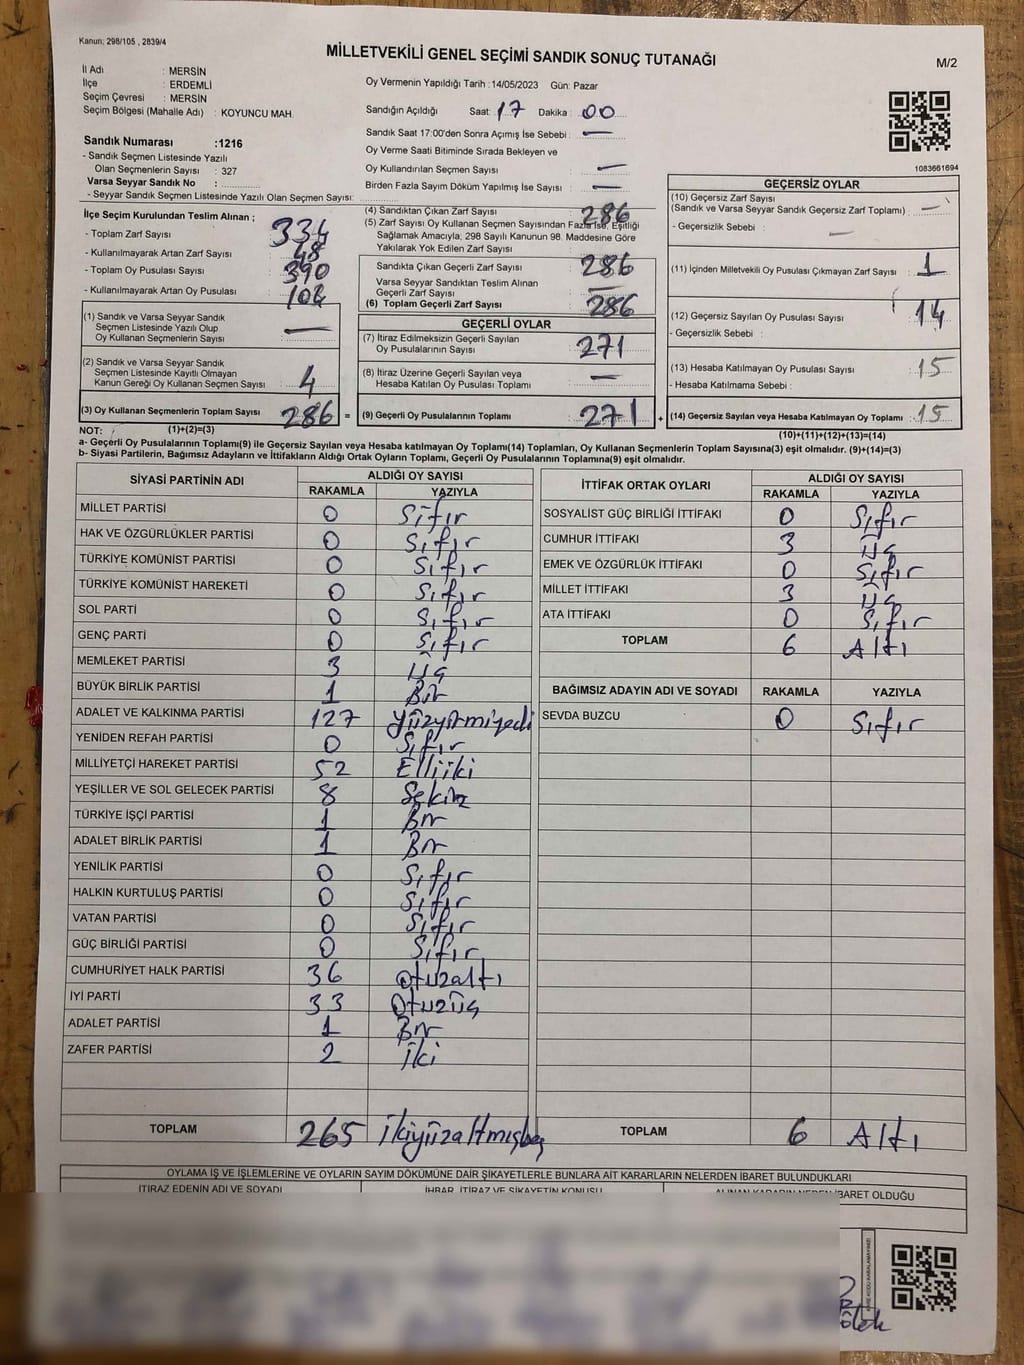 Kanun; 298/105 , 2839/4
MİLLETVEKİLİ GENEL SEÇİMİ SANDIK SONUÇ TUTANAĞI
M/2
İl Adı : MERSİN
İlçe : ERDEMLİ
Seçim Çevresi : MERSİN
Seçim Bölgesi (Mahalle Adı) : KOYUNCU MAH.
Oy Vermenin Yapıldığı Tarih : 14/05/2023 Gün: Pazar
Sandığın Açıldığı Saat: 17 Dakika : 00
Sandık Saat 17:00'den Sonra Açımış İse Sebebi : —
Oy Verme Saati Bitiminde Sırada Bekleyen ve
Oy Kullandırılan Seçmen Sayısı : —
Birden Fazla Sayım Döküm Yapılmış İse Sayısı : —
1083661694
Sandık Numarası :1216
- Sandık Seçmen Listesinde Yazılı
Olan Seçmenlerin Sayısı : 327
Varsa Seyyar Sandık No :
- Seyyar Sandık Seçmen Listesinde Yazılı Olan Seçmen Sayısı:
İlçe Seçim Kurulundan Teslim Alınan ;
- Toplam Zarf Sayısı : 334
- Kullanılmayarak Artan Zarf Sayısı : 48
- Toplam Oy Pusulası Sayısı : 390
- Kullanılmayarak Artan Oy Pusulası :
(1) Sandık ve Varsa Seyyar Sandık
Seçmen Listesinde Yazılı Olup
Oy Kullanan Seçmenlerin Sayısı : —
(2) Sandık ve Varsa Seyyar Sandık
Seçmen Listesinde Kayıtlı Olmayan
Kanun Gereği Oy Kullanan Seçmen Sayısı : 4
(3) Oy Kullanan Seçmenlerin Toplam Sayısı : 286 =
(1)+(2)=(3)
(4) Sandıktan Çıkan Zarf Sayısı : 286
(5) Zarf Sayısı Oy Kullanan Seçmen Sayısından Fazla İse, Eşitliği
Sağlamak Amacıyla, 298 Sayılı Kanunun 98. Maddesine Göre
Yakılarak Yok Edilen Zarf Sayısı
Sandıkta Çıkan Geçerli Zarf Sayısı : 286
Varsa Seyyar Sandıktan Teslim Alınan
Geçerli Zarf Sayısı : —
(6) Toplam Geçerli Zarf Sayısı : 286
GEÇERLİ OYLAR
(7) İtiraz Edilmeksizin Geçerli Sayılan
Oy Pusulalarının Sayısı : 271
(8) İtiraz Üzerine Geçerli Sayılan veya
Hesaba Katılan Oy Pusulası Toplamı : —
(9) Geçerli Oy Pusulalarının Toplamı : 271 +
GEÇERSİZ OYLAR
(10) Geçersiz Zarf Sayısı
(Sandık ve Varsa Seyyar Sandık Geçersiz Zarf Toplamı) : —
- Geçersizlik Sebebi : —
(11) İçinden Milletvekili Oy Pusulası Çıkmayan Zarf Sayısı : 1
(12) Geçersiz Sayılan Oy Pusulası Sayısı : 14
- Geçersizlik Sebebi :
(13) Hesaba Katılmayan Oy Pusulası Sayısı : 15
- Hesaba Katılmama Sebebi :
(14) Geçersiz Sayılan veya Hesaba Katılmayan Oy Toplamı : 15
(10)+(11)+(12)+(13)=(14)
NOT:
a- Geçerli Oy Pusulalarının Toplamı(9) ile Geçersiz Sayılan veya Hesaba katılmayan Oy Toplamı(14) Toplamları, Oy Kullanan Seçmenlerin Toplam Sayısına(3) eşit olmalıdır. (9)+(14)=(3)
b- Siyasi Partilerin, Bağımsız Adayların ve İttifakların Aldığı Ortak Oyların Toplamı, Geçerli Oy Pusulalarının Toplamına(9) eşit olmalıdır.
SİYASİ PARTİNİN ADI ALDIĞI OY SAYISI
RAKAMLA YAZIYLA
MİLLET PARTİSİ 0 Sıfır
HAK VE ÖZGÜRLÜKLER PARTİSİ 0 Sıfır
TÜRKİYE KOMÜNİST PARTİSİ 0 Sıfır
TÜRKİYE KOMÜNİST HAREKETİ 0 Sıfır
SOL PARTİ 0 Sıfır
GENÇ PARTİ 0 Sıfır
MEMLEKET PARTİSİ 3 Üç
BÜYÜK BİRLİK PARTİSİ 1 Bir
ADALET VE KALKINMA PARTİSİ 127 Yüzyirmiyedi
YENİDEN REFAH PARTİSİ 0 Sıfır
MİLLİYETÇİ HAREKET PARTİSİ 52 Elliiki
YEŞİLLER VE SOL GELECEK PARTİSİ 8 Sekiz
TÜRKİYE İŞÇİ PARTİSİ 1 Bir
ADALET BİRLİK PARTİSİ 1 Bir
YENİLİK PARTİSİ 0 Sıfır
HALKIN KURTULUŞ PARTİSİ 0 Sıfır
VATAN PARTİSİ 0 Sıfır
GÜÇ BİRLİĞİ PARTİSİ 0 Sıfır
CUMHURİYET HALK PARTİSİ 36 Otuzaltı
İYİ PARTİ 33 Otuzüç
ADALET PARTİSİ 1 Bir
ZAFER PARTİSİ 2 İki
TOPLAM 265 İkiyüzaltmışbeş
İTTİFAK ORTAK OYLARI ALDIĞI OY SAYISI
RAKAMLA YAZIYLA
SOSYALİST GÜÇ BİRLİĞİ İTTİFAKI 0 Sıfır
CUMHUR İTTİFAKI 3 Üç
EMEK VE ÖZGÜRLÜK İTTİFAKI 0 Sıfır
MİLLET İTTİFAKI 3 Üç
ATA İTTİFAKI 0 Sıfır
TOPLAM 6 Altı
BAĞIMSIZ ADAYIN ADI VE SOYADI RAKAMLA YAZIYLA
SEVDA BUZCU 0 Sıfır
TOPLAM 6 Altı
OYLAMA İŞ VE İŞLEMLERİNE VE OYLARIN SAYIM DÖKÜMÜNE DAİR ŞİKAYETLERLE BUNLARA AİT KARARLARIN NELERDEN İBARET BULUNDUKLARI
İTİRAZ EDENİN ADI VE SOYADI İHBAR, İTİRAZ VE ŞİKAYETİN KONUSU ALINAN KARARIN NEDEN İBARET OLDUĞU